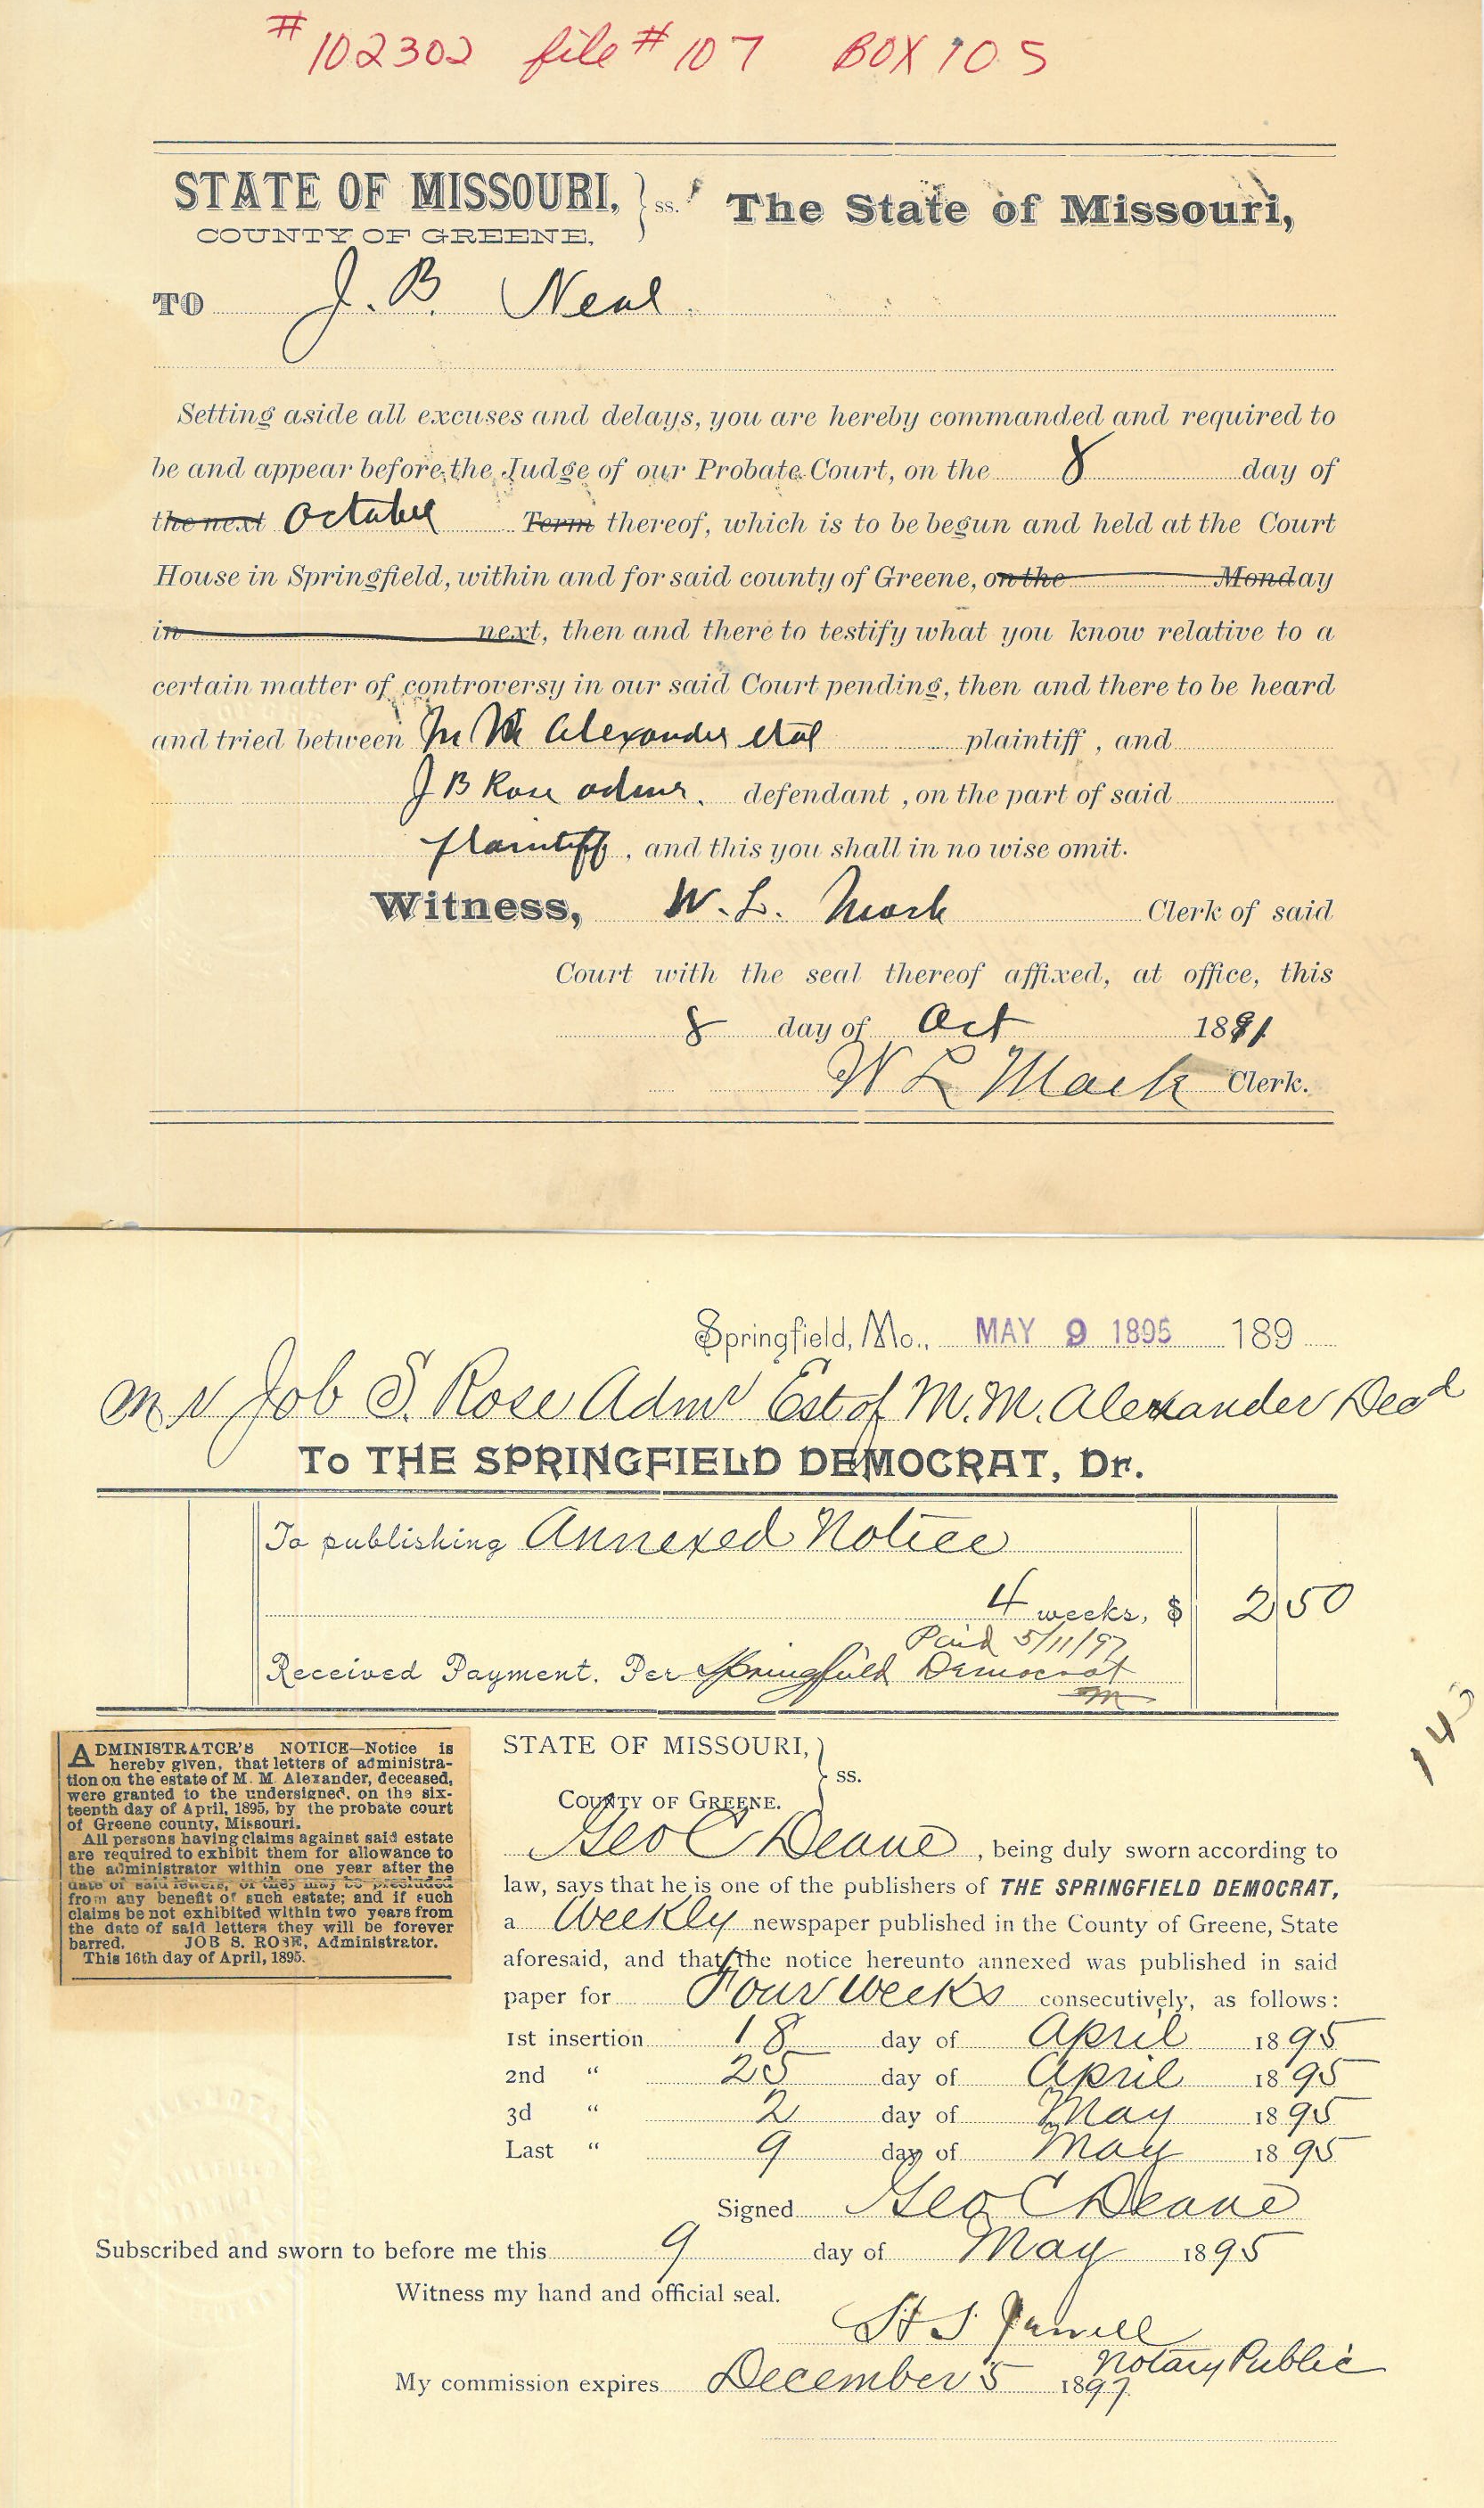 # 102302 file # 107 BOX 105
STATE OF MISSOURI, } ss. The State of Missouri,
COUNTY OF GREENE,
TO J. B. Neal.
Setting aside all excuses and delays, you are hereby commanded and required to
be and appear before the Judge of our Probate Court, on the 8 day of
the next October Term thereof, which is to be begun and held at the Court
House in Springfield, within and for said county of Greene, on the Monday
in next, then and there to testify what you know relative to a
certain matter of controversy in our said Court pending, then and there to be heard
and tried between M M Alexander et al plaintiff, and
J B Rose admr. defendant, on the part of said
plaintiff, and this you shall in no wise omit.
Witness, W. L. Mack Clerk of said
Court with the seal thereof affixed, at office, this
8 day of Oct 18
W L Mack Clerk.
Springfield, Mo., MAY 9 1895 189
Mr Job S. Rose Admr Est of M. M. Alexander Decd
To THE SPRINGFIELD DEMOCRAT, Dr.
To publishing Annexed Notice
4 weeks, $ 2 50
Paid 5/11/97
Received Payment. Per Springfield Democrat
m
14
ADMINISTRATOR'S NOTICE—Notice is
hereby given, that letters of administra-
tion on the estate of M. M. Alexander, deceased,
were granted to the undersigned, on the six-
teenth day of April, 1895, by the probate court
of Greene county, Missouri.
All persons having claims against said estate
are required to exhibit them for allowance to
the administrator within one year after the
date of said letters, or they may be precluded
from any benefit of such estate; and if such
claims be not exhibited within two years from
the date of said letters they will be forever
barred. JOB S. ROSE, Administrator.
This 16th day of April, 1895.
STATE OF MISSOURI, } ss.
COUNTY OF GREENE.
Geo C Deane, being duly sworn according to
law, says that he is one of the publishers of THE SPRINGFIELD DEMOCRAT,
a Weekly newspaper published in the County of Greene, State
aforesaid, and that the notice hereunto annexed was published in said
paper for Four weeks consecutively, as follows:
1st insertion 18 day of April 1895
2nd " 25 day of April 1895
3d " 2 day of May 1895
Last " 9 day of May 1895
Signed Geo C Deane
Subscribed and sworn to before me this 9 day of May 1895
Witness my hand and official seal.
Notary Public
My commission expires December 5 1897.